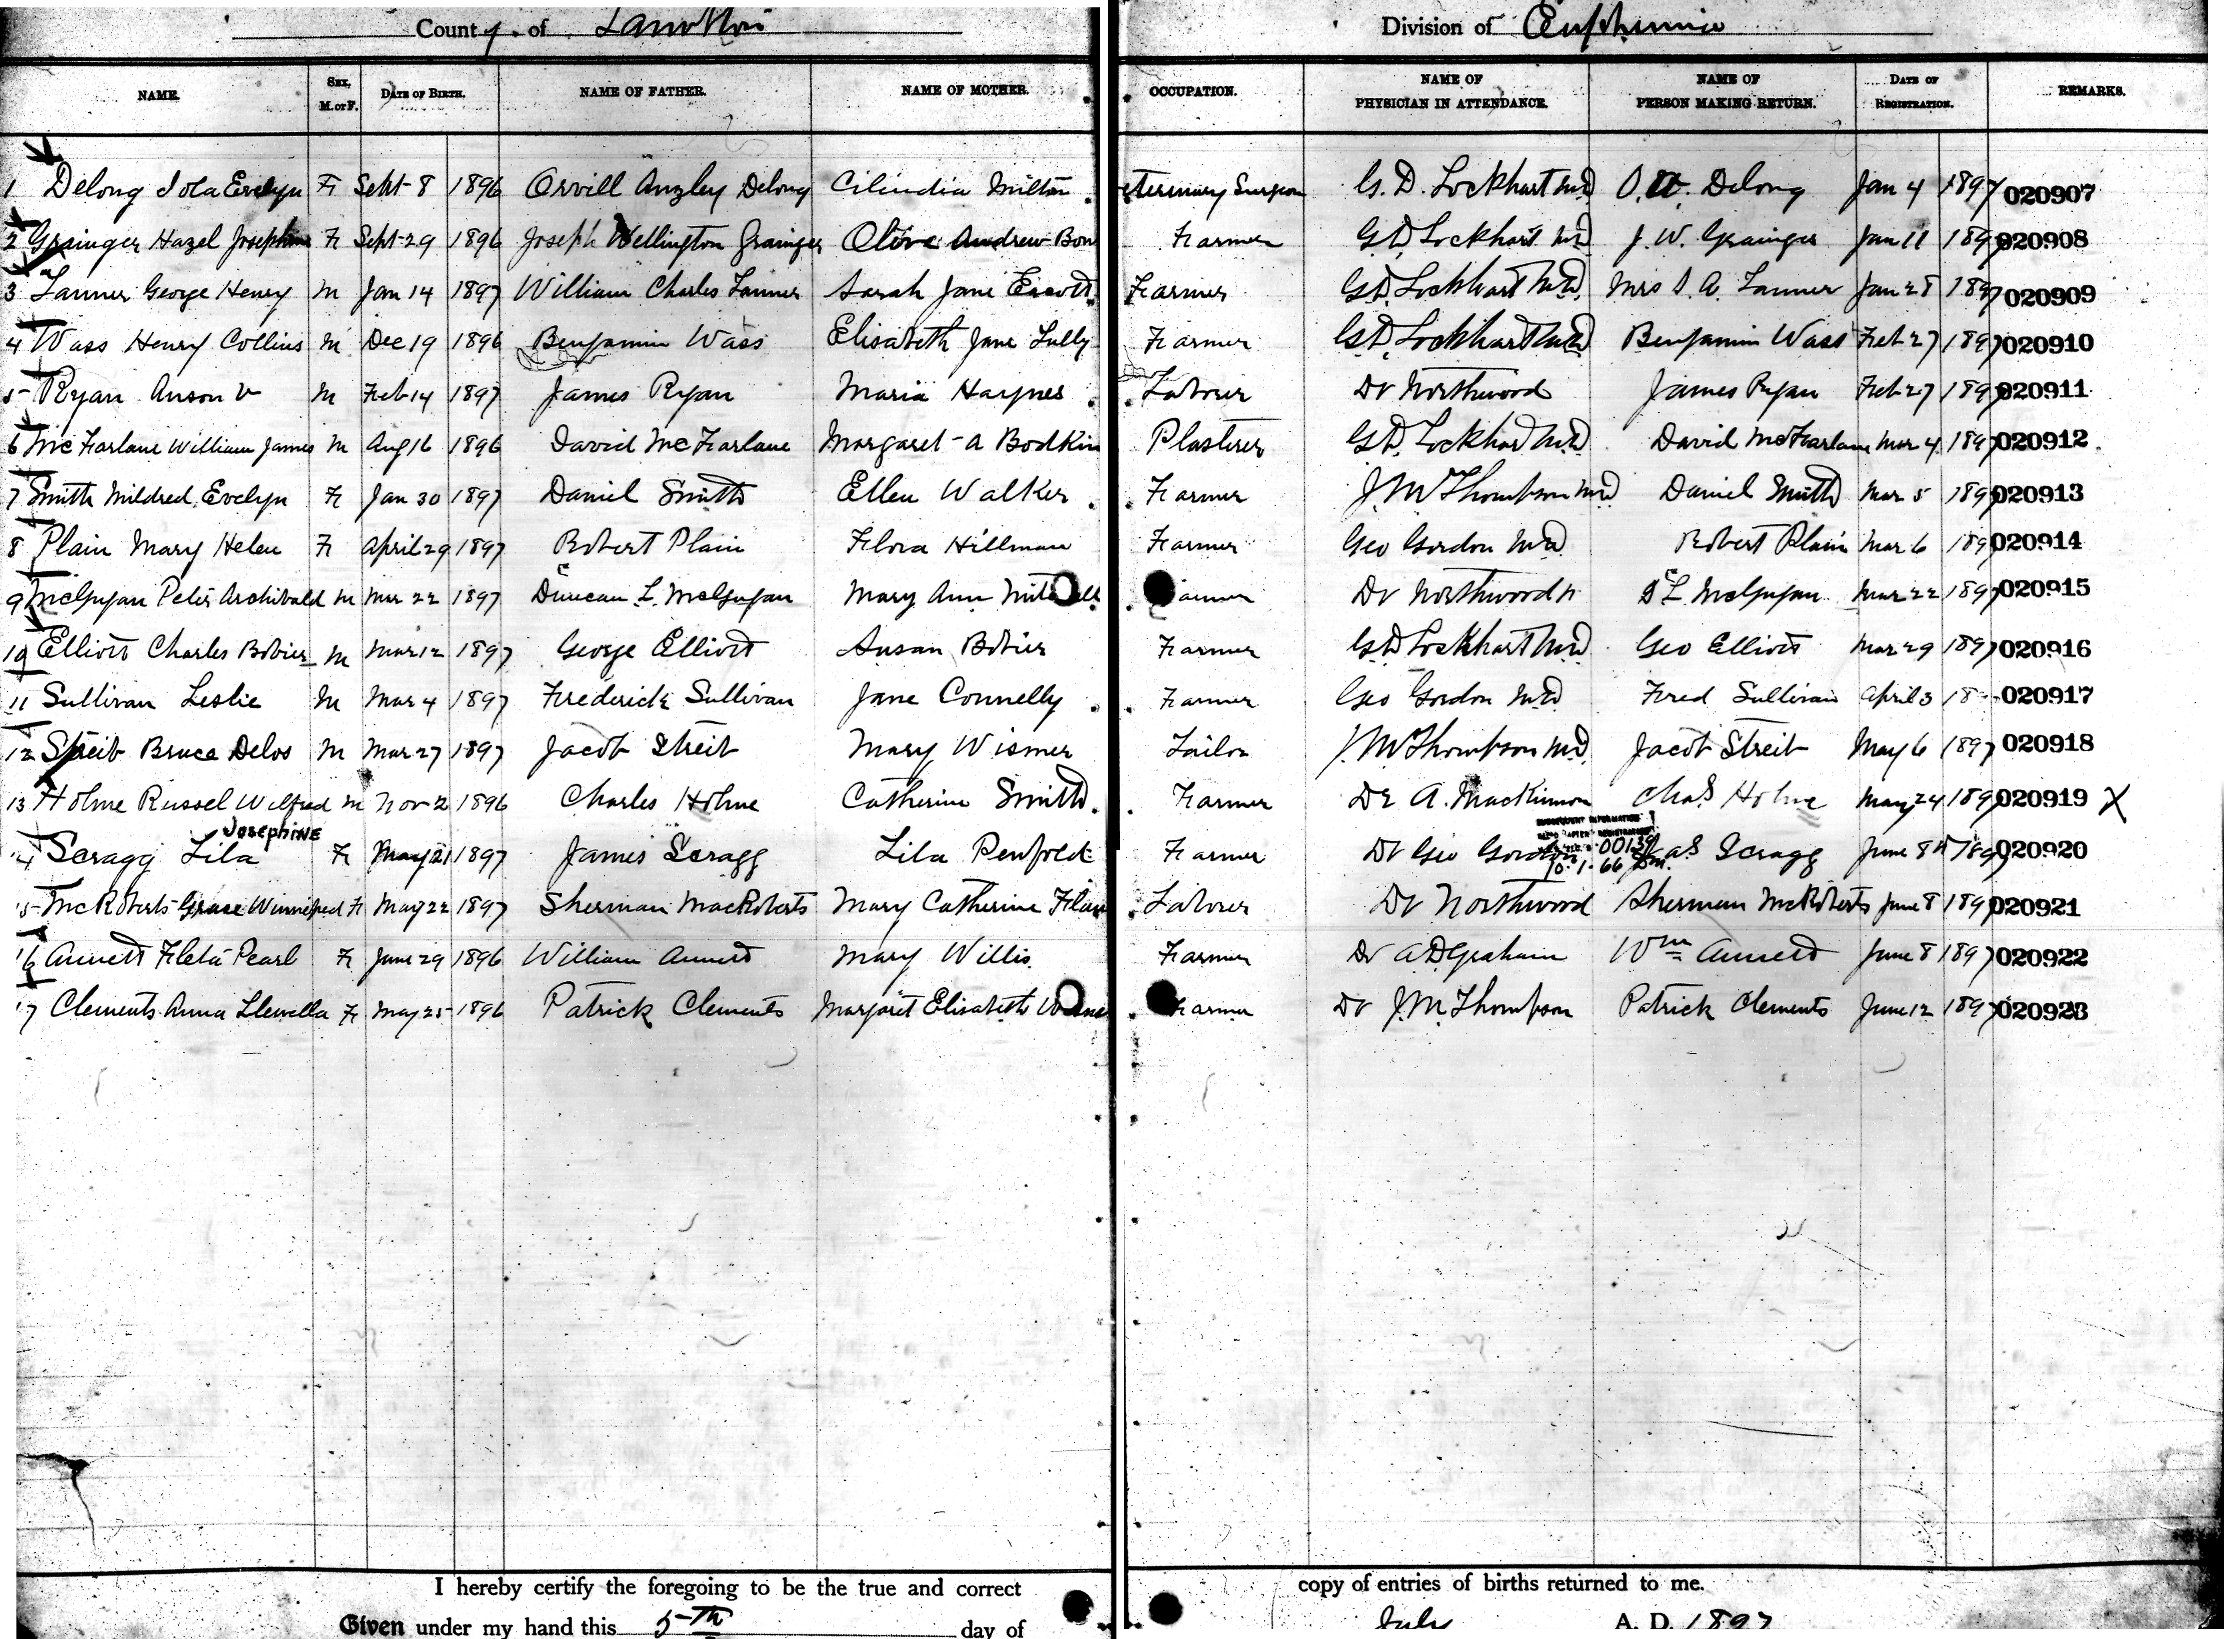 County of Lambton Division of Euphemia
NAME. SEX, M. or F. DATE OF BIRTH. NAME OF FATHER. NAME OF MOTHER. OCCUPATION. NAME OF PHYSICIAN IN ATTENDANCE. NAME OF PERSON MAKING RETURN. DATE OF REGISTRATION. REMARKS.
1 Delong Iola Evelyn F Sept 8 1896 Orvill Anzley Delong Cilindia Milton eterinary Surgeon G. D. Lockhart MD O. A. Delong Jan 4 1897 020907
2 Grainger Hazel Josephine F Sept 29 1896 Joseph Wellington Grainger Olive Andrew Bow Farmer G D Lockhart MD J. W. Grainger Jan 11 1897 020908
3 George Henry M Jan 14 1897 William Charles Sarah Jane Farmer G D. Lockhart M.D. Mrs Jan 28 1897 020909
4 Wass Henry Collins M Dec 19 1896 Benjamin Wass Elisabeth Jane Farmer G. D. Lockhart MD Benjamin Wass Feb 27 1897 020910
5 Ryan Anson V M Feb 14 1897 James Ryan Maria Haynes Laborer Dr Northwood James Ryan Feb 27 1897 020911
6 McFarlane William James M Aug 16 1896 David McFarlane Margaret A Bodkin Plasterer G D. Lockhart M.D David McFarlane Mar 4 1897 020912
7 Smith Mildred Evelyn F Jan 30 1897 Daniel Smith Ellen Walker Farmer J. McThompson MD Daniel Smith Mar 5 1897 020913
8 Plain Mary Helen F April 29 1897 Robert Plain Flora Hillman Farmer Geo Gordon MD Robert Plain Mar 6 189 020914
9 McGugan Peter Archibald M Mar 22 1897 Duncan L. McGugan Mary Ann Mit ll armer Dr Northwood D L McGugan Mar 22 1897 020915
10 Elliott Charles Bobier M Mar 12 1897 George Elliott Susan Bobier Farmer G D Lockhart M.D Geo Elliott Mar 29 1897 020916
11 Sullivan Leslie M Mar 4 1897 Frederick Sullivan Jane Connelly Farmer Geo Gordon MD Fred Sullivan April 3 18 020917
12 Streit Bruce Delos M Mar 27 1897 Jacob Streit Mary Wismer Tailor J McThompson M.D. Jacob Streit May 6 1897 020918
13 Holme Russel Wilfred M Nov 2 1896 Charles Holme Catherine Smith Farmer Dr A. MacKinnon Chas Holme May 24 1897 020919 X
Josephine
14 Scragg Lila F May 21 1897 James Scragg Lila Penfold Farmer Dr Geo Gordon Jas Scragg June 8th 1897 020920
15 McRoberts Grace Winnifred F May 22 1897 Sherman MacRoberts Mary Catherine Laborer Dr Northwood Sherman McRoberts June 8 1897 020921
16 Annett Fleta Pearl F June 29 1896 William Annett Mary Willis Farmer Dr A D Graham Wm Annett June 8 1897 020922
17 Clements Anna Llewella F May 25 1896 Patrick Clements Margaret Elisabeth Farmer Dr J. M. Thompson Patrick Clements June 12 1897 020923
I hereby certify the foregoing to be the true and correct copy of entries of births returned to me.
Given under my hand this 5th day of July A. D. 1897